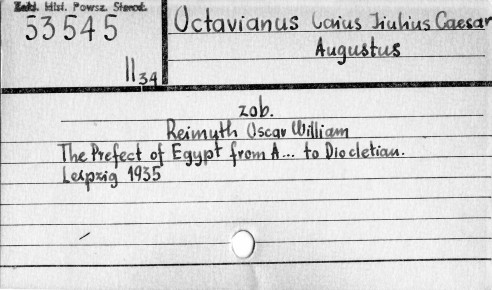 Zakł. Hist. Powsz. Staroż.
53545
II 34
Octavianus Caius Iiulius Caesar
Augustus
zob.
Reimuth Oscar William
The Prefect of Egypt from A... to Diocletian.
Leipzig 1935